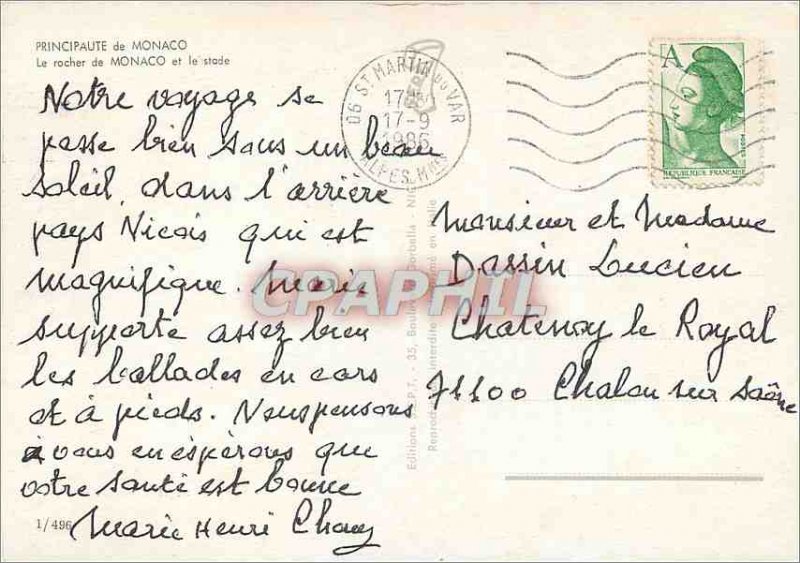 PRINCIPAUTE de MONACO
Le rocher de MONACO et le stade
Notre voyage se
passe bien sous un beau
soleil, dans l'arrière
pays Nicois qui est
magnifique. Marie
supporte assez bien
les ballades en cars
et à pieds. Nous pensons
à vous en espérons que
votre santé est bonne
Marie Henri
1/496
06 ST MARTIN DU VAR
17-9
1986
ALPES MMES
A
POSTES
REPUBLIQUE FRANCAISE
Monsieur et Madame
Dassin Lucien
Chatenoy le Royal
71100 Chalon sur Saône
Editions - 35, Boulevard
Reproduction interdite
CPAPHIL